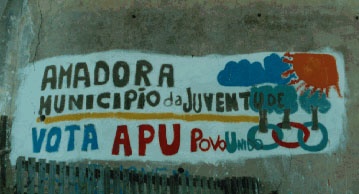 AMADORA
MUNICIPIO da JUVENTUDE
VOTA APU Povo Unido